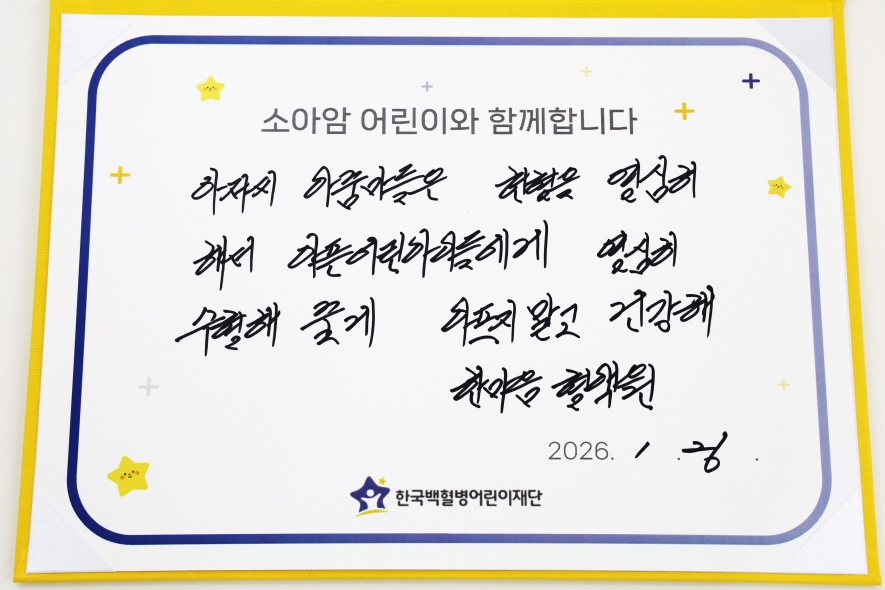 소아암 어린이와 함께합니다
아자씨 아줌마들은 헌혈을 열심히
해서 아픈어린아이들에게 열심히
수혈해 줄게 아프지 말고 건강해
한마음 혈액원
2026. 1 .
한국백혈병어린이재단